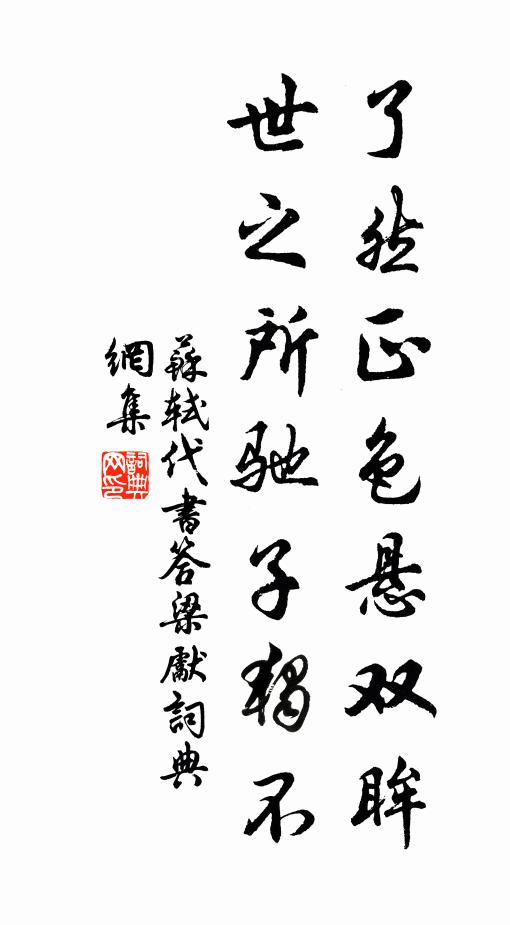 了然正色悬双眸
世之所驰子独不
蘇軾代書答梁獻詞典
網集
詞典
网印